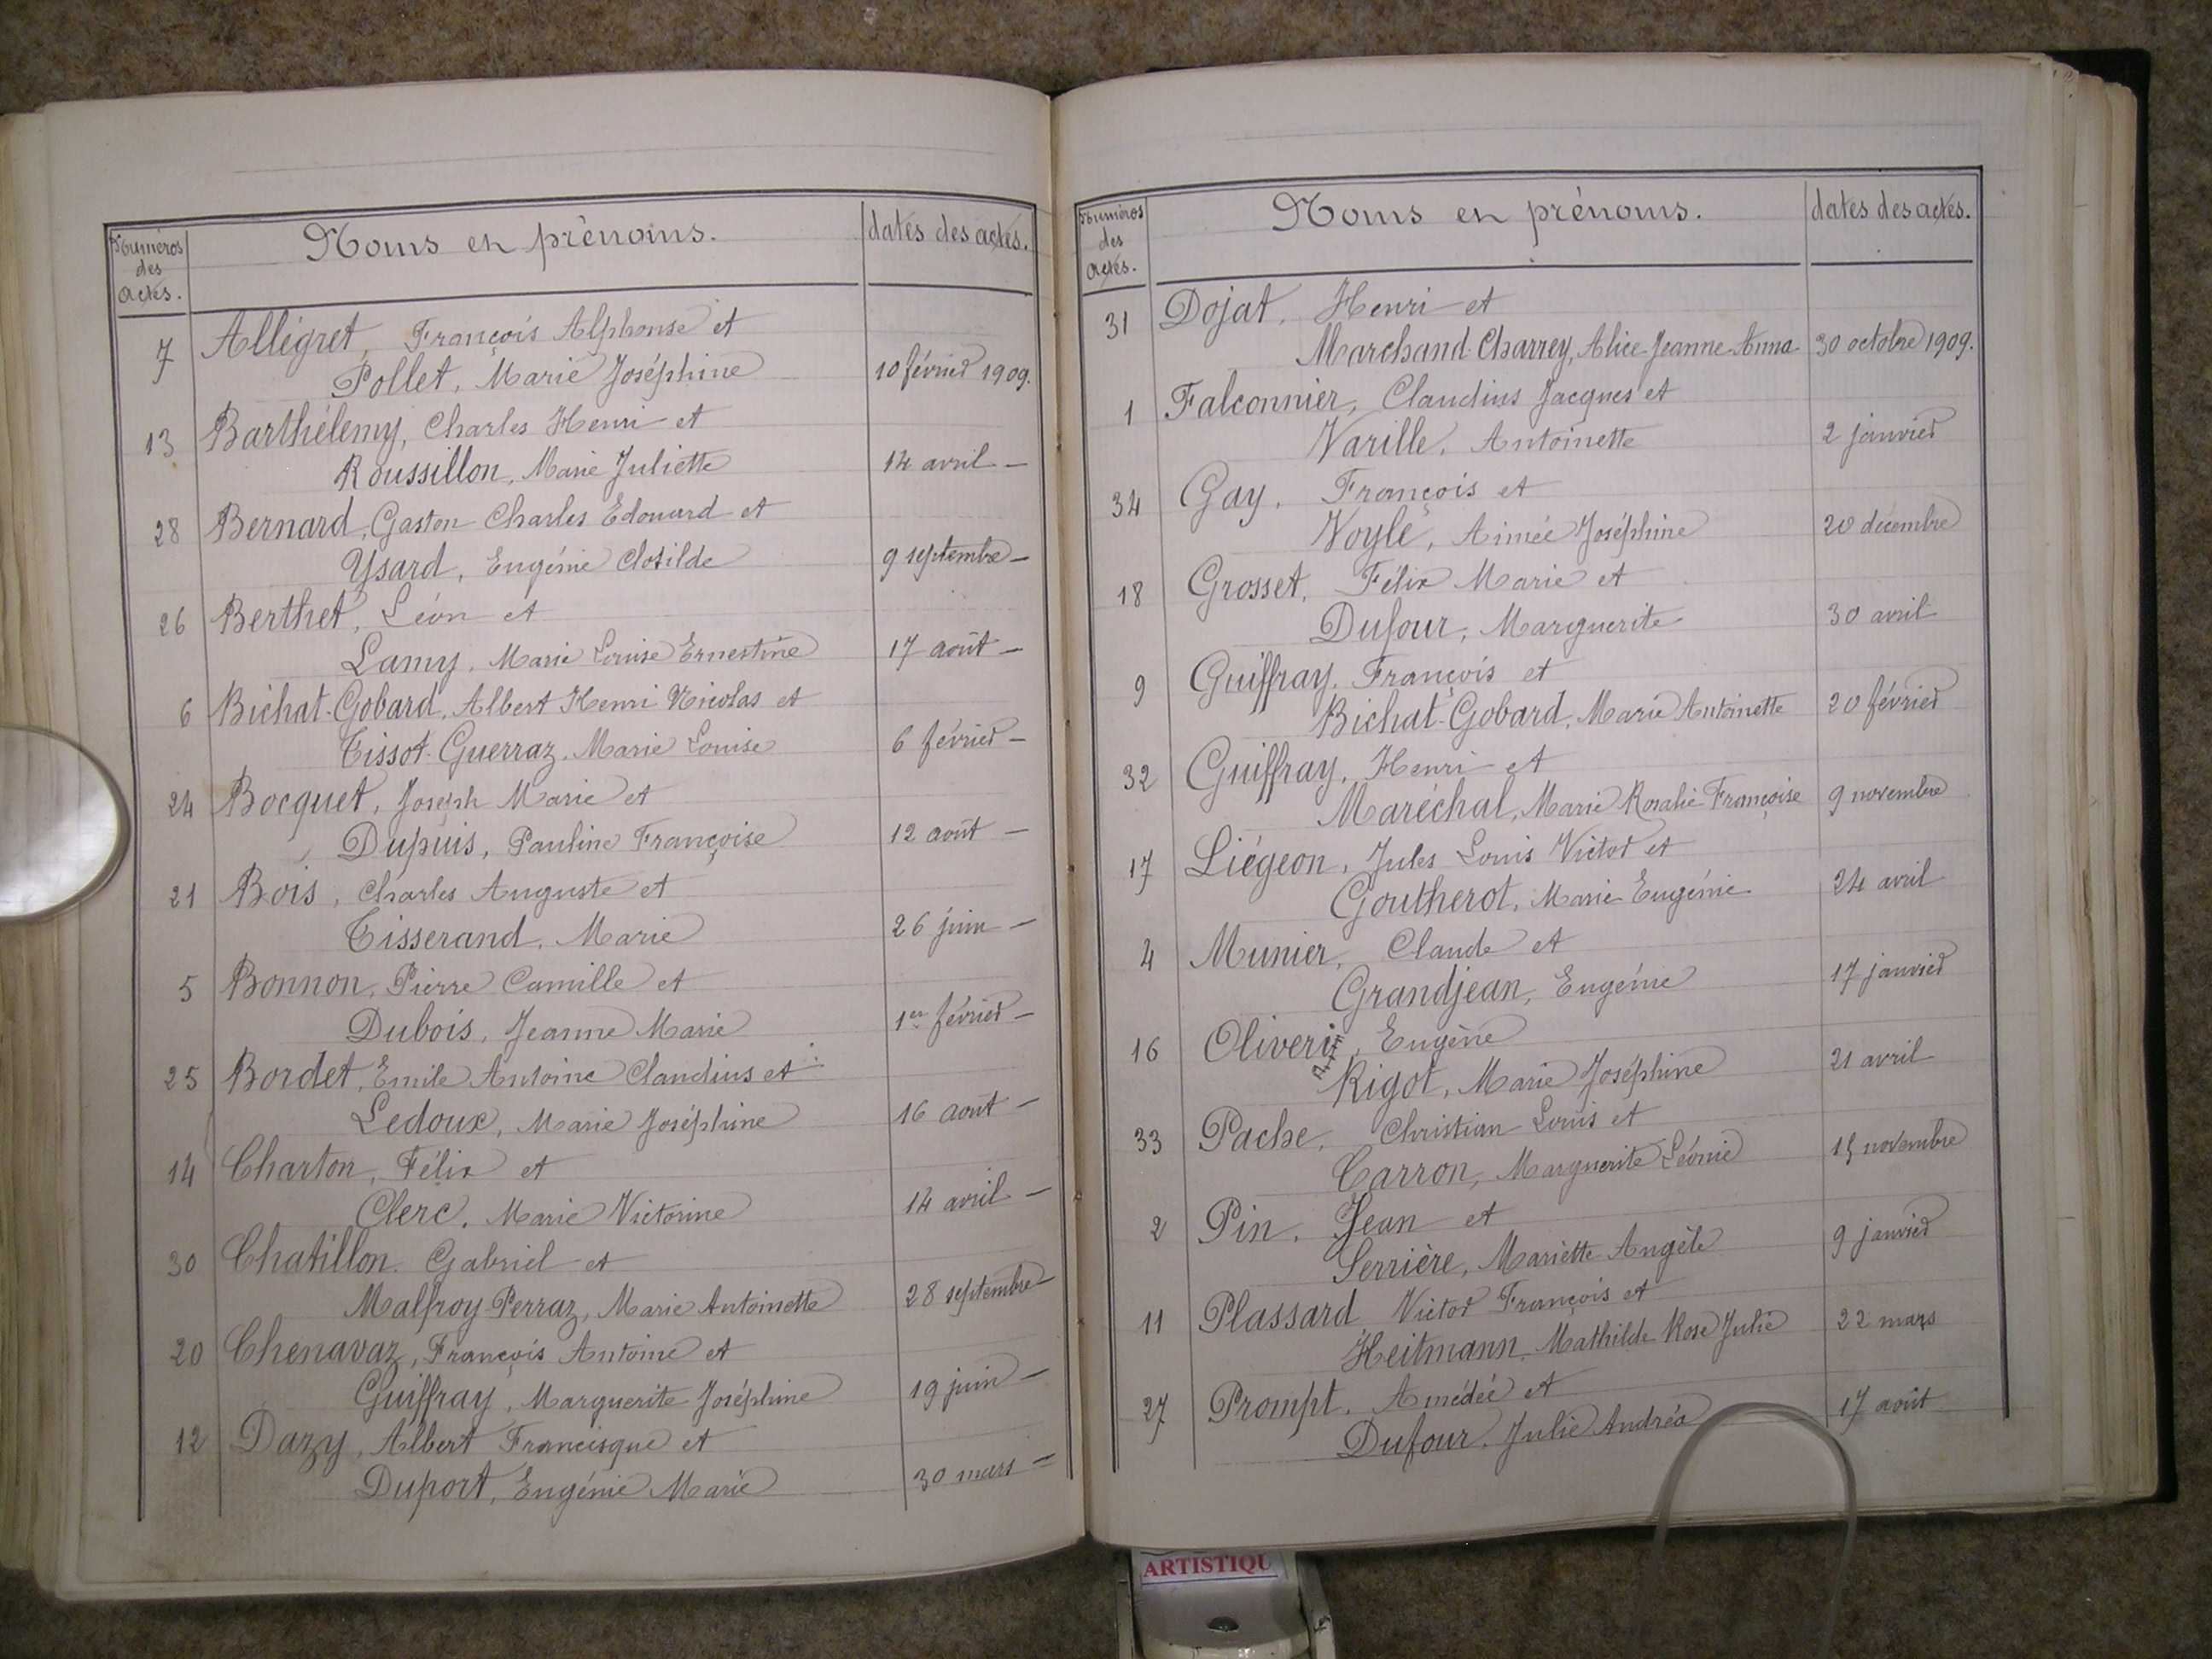 Numéros des actes.
Noms et prénoms.
dates des actes.
7 Allégret, François Alphonse et
Pollet, Marie Joséphine 10 février 1909.
13 Barthélemy, Charles Henri et
Roussillon, Marie Juliette 14 avril —
28 Bernard, Gaston Charles Edouard et
Ysard, Eugénie Clotilde 9 septembre —
26 Berthet, Léon et
Lamy, Marie Louise Ernestine 17 août —
6 Bichat-Gobard, Albert Henri Nicolas et
Tissot-Guerraz, Marie Louise 6 février —
24 Bocquet, Joseph Marie et
Dupuis, Pauline Françoise 12 août —
21 Bois, Charles Auguste et
Tisserand, Marie 26 juin —
5 Bonnon, Pierre Camille et
Dubois, Jeanne Marie 1er février —
25 Bordet, Emile Antoine Claudius et
Ledoux, Marie Joséphine 16 août —
14 Charton, Félix et
Clerc, Marie Victorine 14 avril —
30 Chatillon, Gabriel et
Malfroy-Perraz, Marie Antoinette 28 septembre —
20 Chenavaz, François Antoine et
Guiffray, Marguerite Joséphine 19 juin —
12 Dazy, Albert Francisque et
Duport, Eugénie Marie 30 mars —
Numéros des actes.
Noms et prénoms.
dates des actes.
31 Dojat, Henri et
Marchand-Charrey, Alice Jeanne Anna 30 octobre 1909.
1 Falconnier, Claudius Jacques et
Varille, Antoinette 2 janvier
34 Gay, François et
Voyle, Aimée Joséphine 20 décembre
18 Grosset, Félix Marie et
Dufour, Marguerite 30 avril
9 Guiffray, François et
Bichat-Gobard, Marie Antoinette 20 février
32 Guiffray, Henri et
Maréchal, Marie Rosalie Françoise 9 novembre
17 Liégeon, Jules Louis Victor et
Goutherot, Marie Eugénie 24 avril
4 Munier, Claude et
Grandjean, Eugénie 17 janvier
16 Oliveri, Eugène
Rigot, Marie Joséphine 21 avril
33 Pache, Christian Louis et
Carron, Marguerite Léonie 15 novembre
2 Pin, Jean et
Serrière, Mariette Angèle 9 janvier
11 Plassard Victor François et
Heitmann, Mathilde Rose Julie 22 mars
27 Prompt, Amédée et
Dufour, Julie Andréa 17 août
ARTISTIQU